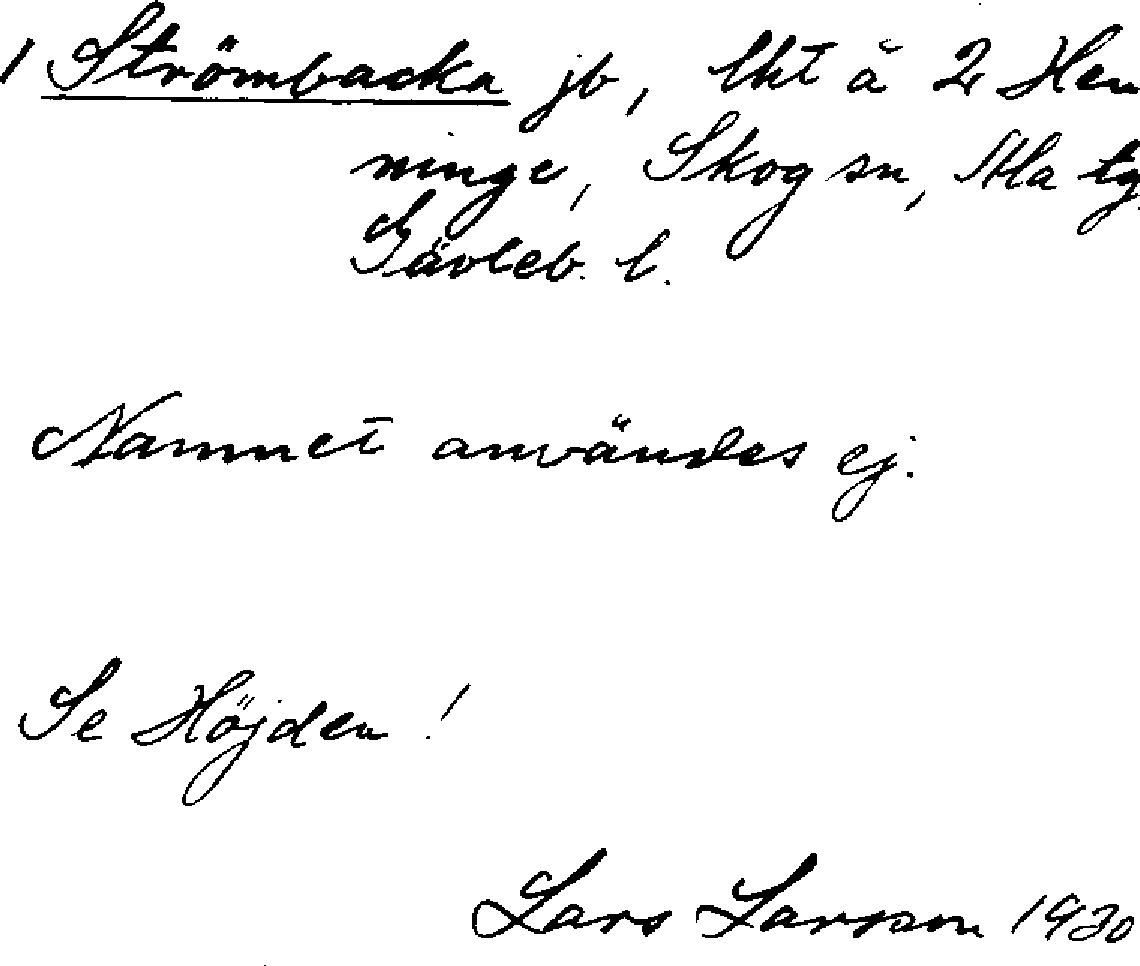 1 Strömbacka jb, lht å 2 Hen
ninge, Skog sn, Ala tg
Gävleb. l.
Namnet användes ej.
Se Höjden!
Lars Larsson 1930